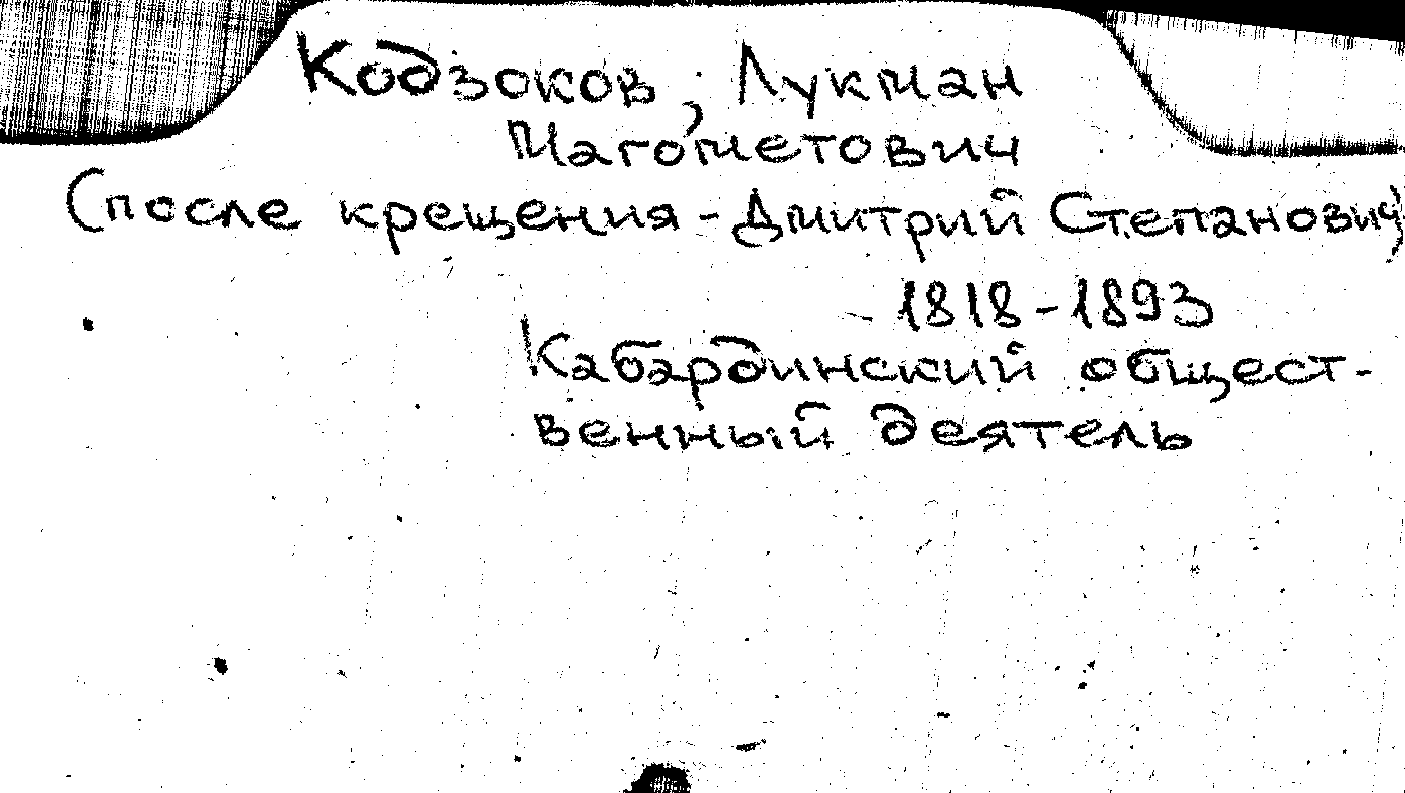 Кодзоков, Лукман
Магометович
(после крещения - Дмитрий Степанович)
1818-1893
Кабардинский общест-
венный деятель